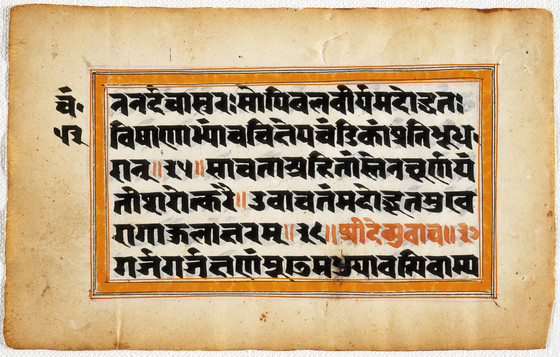 चं॰
५२
ननर्दचासुरःसोपिबलवीर्यमदोद्धतः
विषाणाभ्यांचचिक्षेपचंडिकांप्रतिभूध॰
रान्॥३५॥साचतान्प्रहितांस्तेनचूर्णयं
तीशरोत्करैः॥उवाचतंमदोद्धूतमुख
रागाकुलाक्षरम्॥३६॥श्रीदेव्युवाच॥३७
गर्जगर्जक्षणंमूढमधुयावत्पिबाम्य